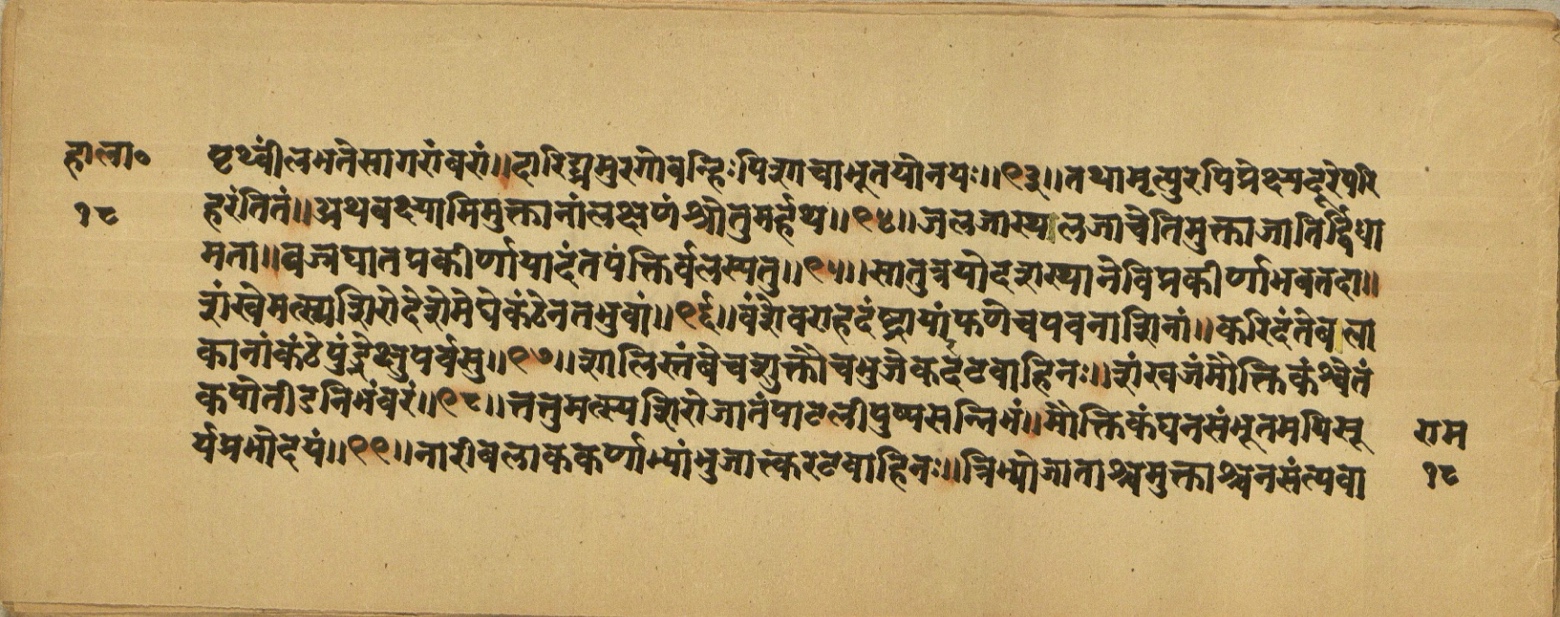 हाला०
१८
पृथ्वींलभतेसागरांबरां॥दारिद्र्यमुरगोवन्हिःपिशाचाभूतयोनयः॥९३॥तथामृत्युरपिप्रेक्ष्यदूरेपरि
हरंतितं॥अथवक्ष्यामिमुक्तानांलक्षणंश्रोतुमर्हथ॥९४॥जलजास्थलजाचेतिमुक्ताजातिर्द्विधा
मता॥वज्रघातप्रकीर्णायादंतपंक्तिर्वलस्यतु॥९५॥सातुत्रयोदशस्थानेविप्रकीर्णाभवत्तदा॥
शंखेमत्स्यशिरोदेशेमेघेकंठेनतभ्रुवां॥९६॥वंशेवराहदंष्ट्रायांफणेचपवनाशिनां॥करिदंतेबला
कानांकंठेपुंड्रेक्षुपर्वसु॥९७॥शालिस्तंबेचशुक्तौचभुजेकर्दटवाहिनः॥शंखजंमौक्तिकंश्वेतं
कपोतीडनिभंवरं॥९८॥तत्तुमत्स्यशिरोजातंपाटलीपुष्पसन्निभं॥मौक्तिकंघनसंभूतमपिसू
र्यप्रभोदयं॥९९॥नारीबलाककर्णाभ्यांभुजात्करटवाहिनः॥त्रिभ्योजाताश्चमुक्ताश्चनसंत्यवा
राम
१८